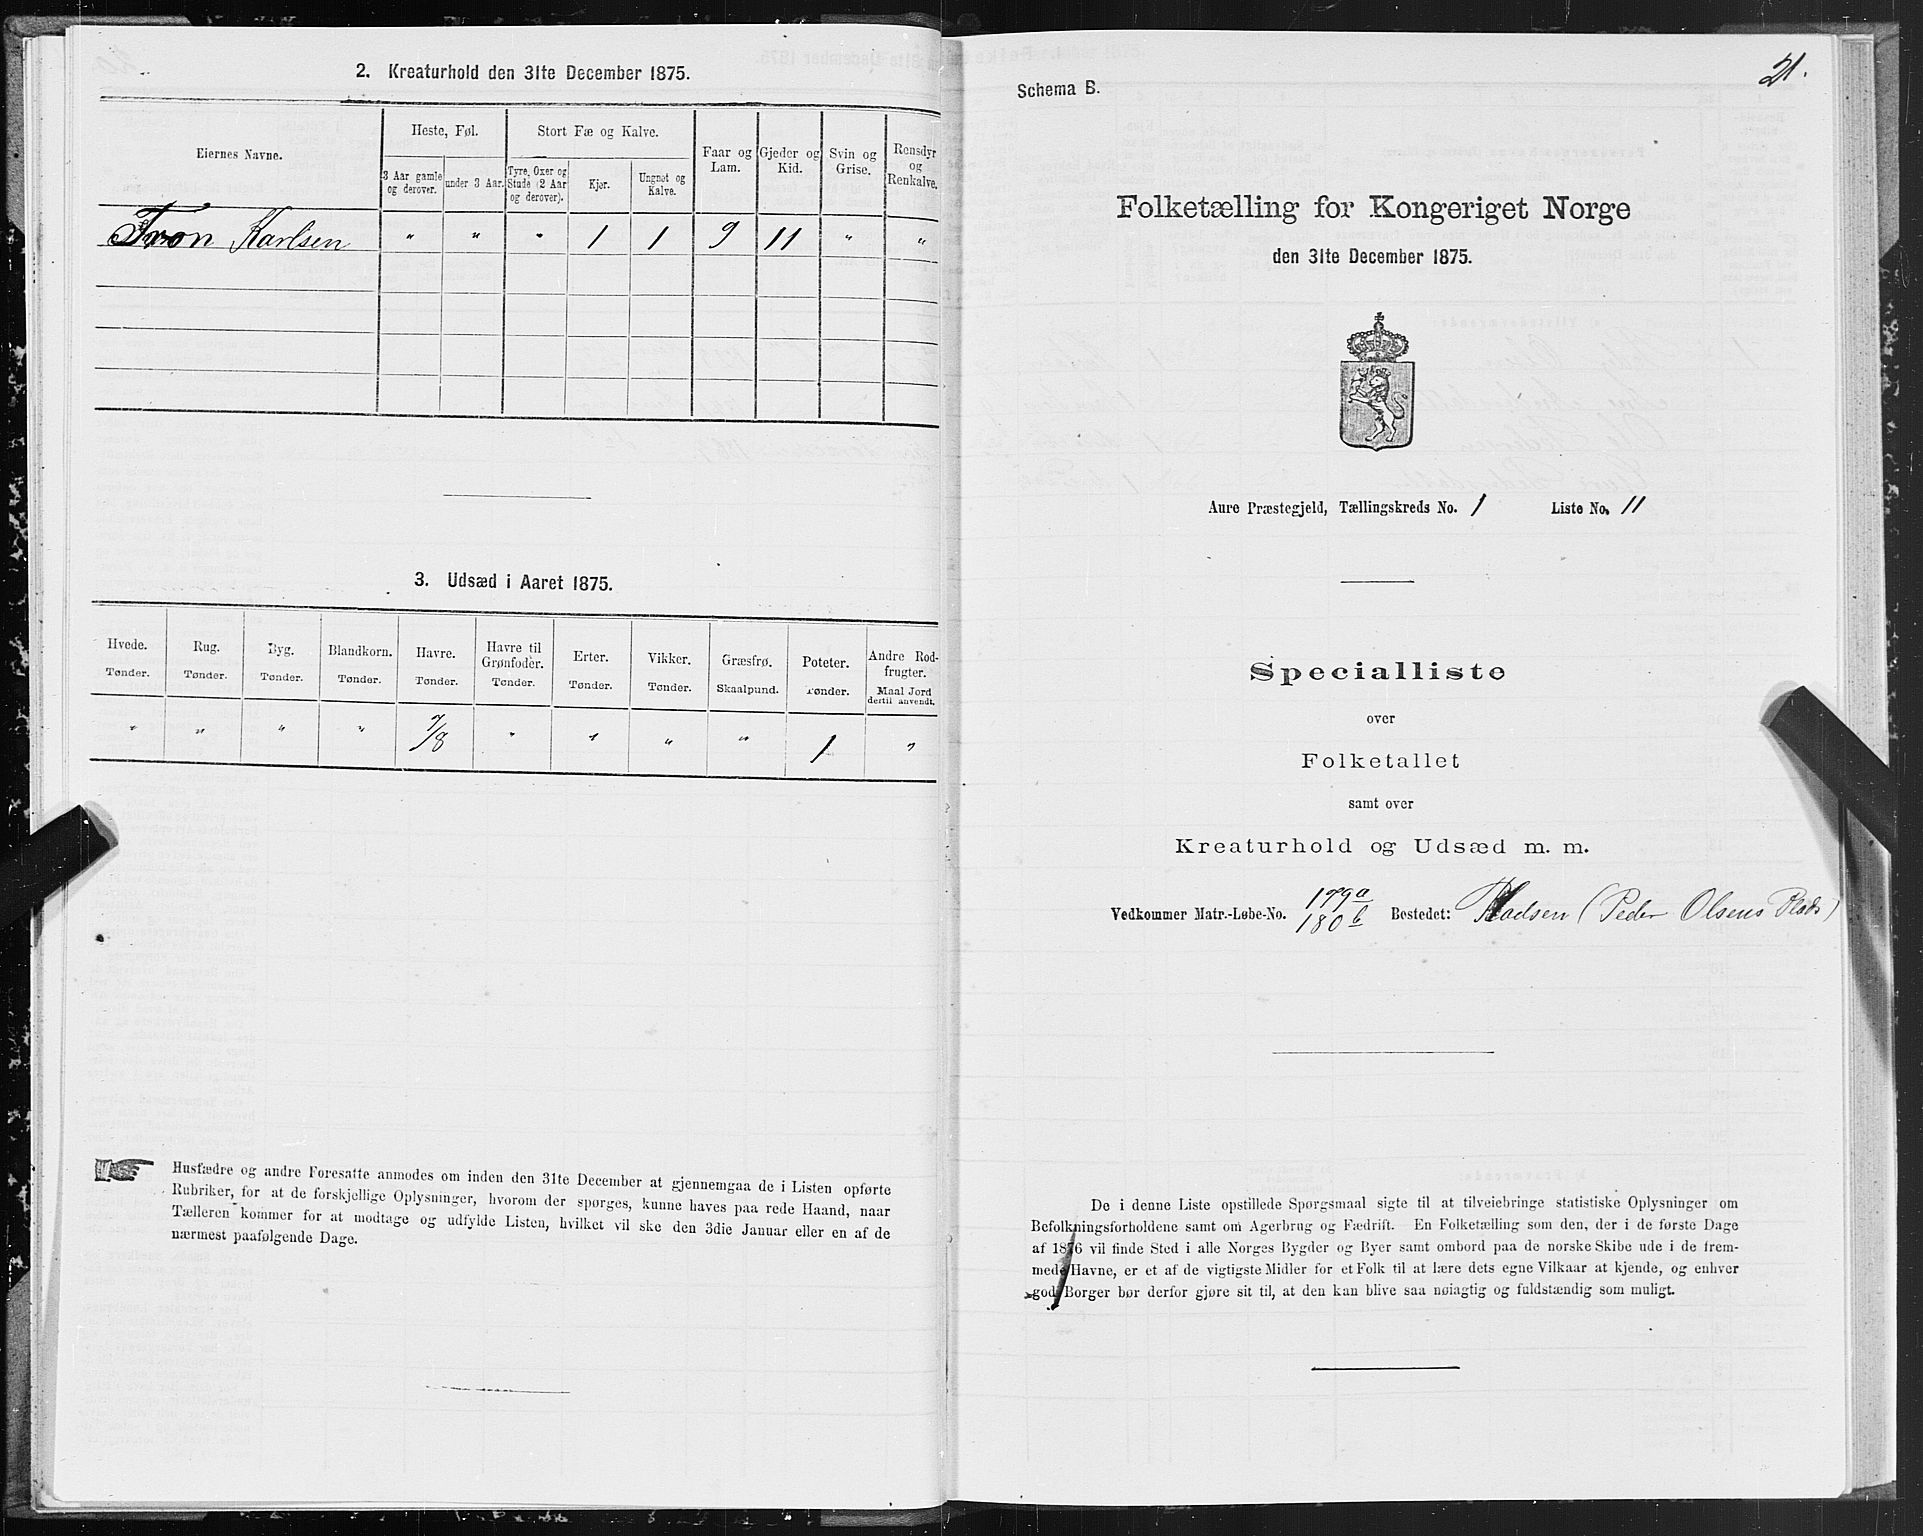 2. Kreaturhold den 31te December 1875.
Eiernes Navne.
Heste, Føl.
Stort Fæ og Kalve.
Faar og Lam.
Gjeder og Kid.
Svin og Grise.
Rensdyr og Renkalve.
3 Aar gamle og derover.
under 3 Aar.
Tyre, Oxer og Stude (2 Aar og derover).
Kjør.
Ungnøt og Kalve.
Tron Karlsen " " " 1 1 9 11 " "
3. Udsæd i Aaret 1875.
Hvede. Rug. Byg. Blandkorn. Havre. Havre til Grønfoder. Erter. Vikker. Græsfrø. Poteter. Andre Rodfrugter.
Tønder. Tønder. Tønder. Tønder. Tønder. Tønder. Tønder. Tønder. Skaalpund. Tønder. Maal Jord dertil anvendt.
" " " " 7/8 " " " " 1 "
Husfædre og andre Foresatte anmodes om inden den 31te December at gjennemgaa de i Listen opførte
Rubriker, for at de forskjellige Oplysninger, hvorom der spørges, kunne haves paa rede Haand, naar
Tælleren kommer for at modtage og udfylde Listen, hvilket vil ske den 3die Januar eller en af de
nærmest paafølgende Dage.
21.
Schema B.
Folketælling for Kongeriget Norge
den 31te December 1875.
Aure Præstegjeld, Tællingskreds No. 1 Liste No. 11
Specialliste
over
Folketallet
samt over
Kreaturhold og Udsæd m. m.
Vedkommer Matr.-Løbe-No. 179a 180b Bostedet: (Peder Olsens Plads)
De i denne Liste opstillede Spørgsmaal sigte til at tilveiebringe statistiske Oplysninger om
Befolkningsforholdene samt om Agerbrug og Fædrift. En Folketælling som den, der i de første Dage
af 1876 vil finde Sted i alle Norges Bygder og Byer samt ombord paa de norske Skibe ude i de frem-
mede Havne, er et af de vigtigste Midler for et Folk til at lære dets egne Vilkaar at kjende, og enhver
god Borger bør derfor gjøre sit til, at den kan blive saa nøiagtig og fuldstændig som muligt.